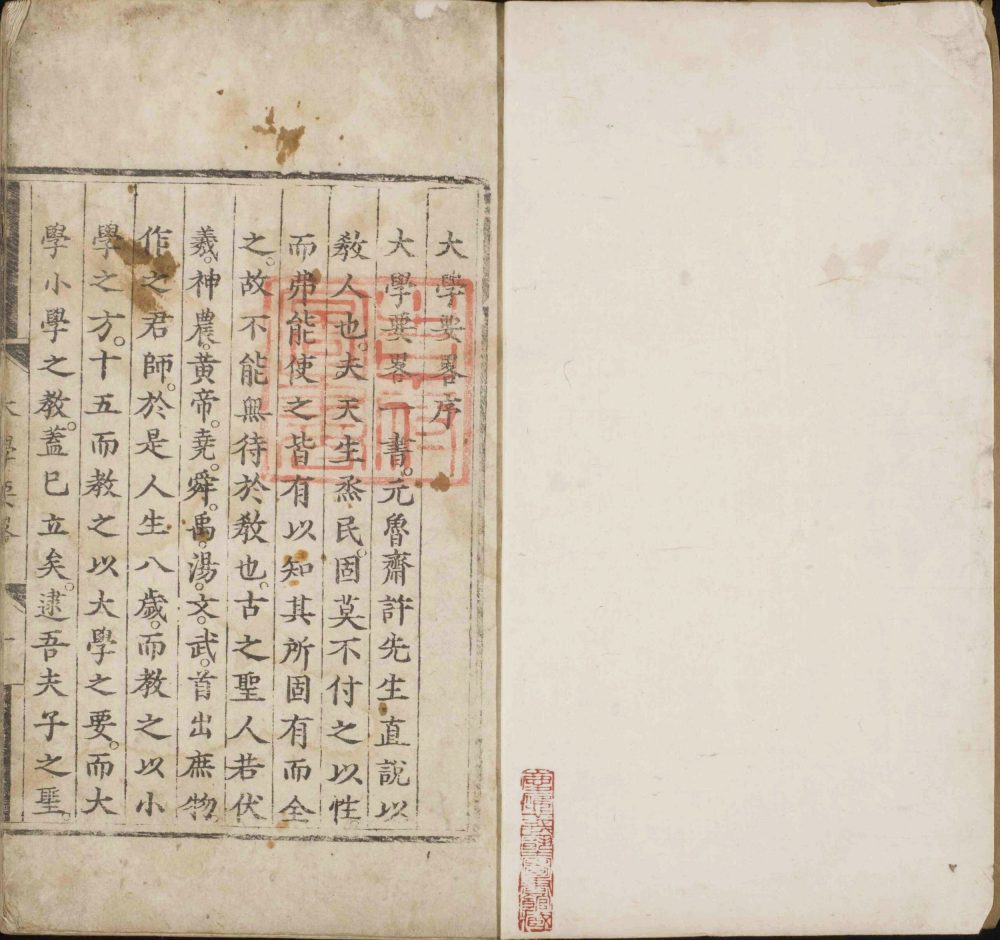 大學要畧序
大學要畧一書。元魯齋許先生直說以
教人也。夫天生烝民。固莫不付之以性。
而弗能使之皆有以知其所固有而全
之。故不能無待於教也。古之聖人若伏
羲。神農。黃帝。堯。舜。禹。湯。文。武。首出庶物。
作之君師。於是人生八歲。而教之以小
學之方。十五而教之以大學之要。而大
學小學之教。蓋已立矣。逮吾夫子之聖。
大學要畧
一